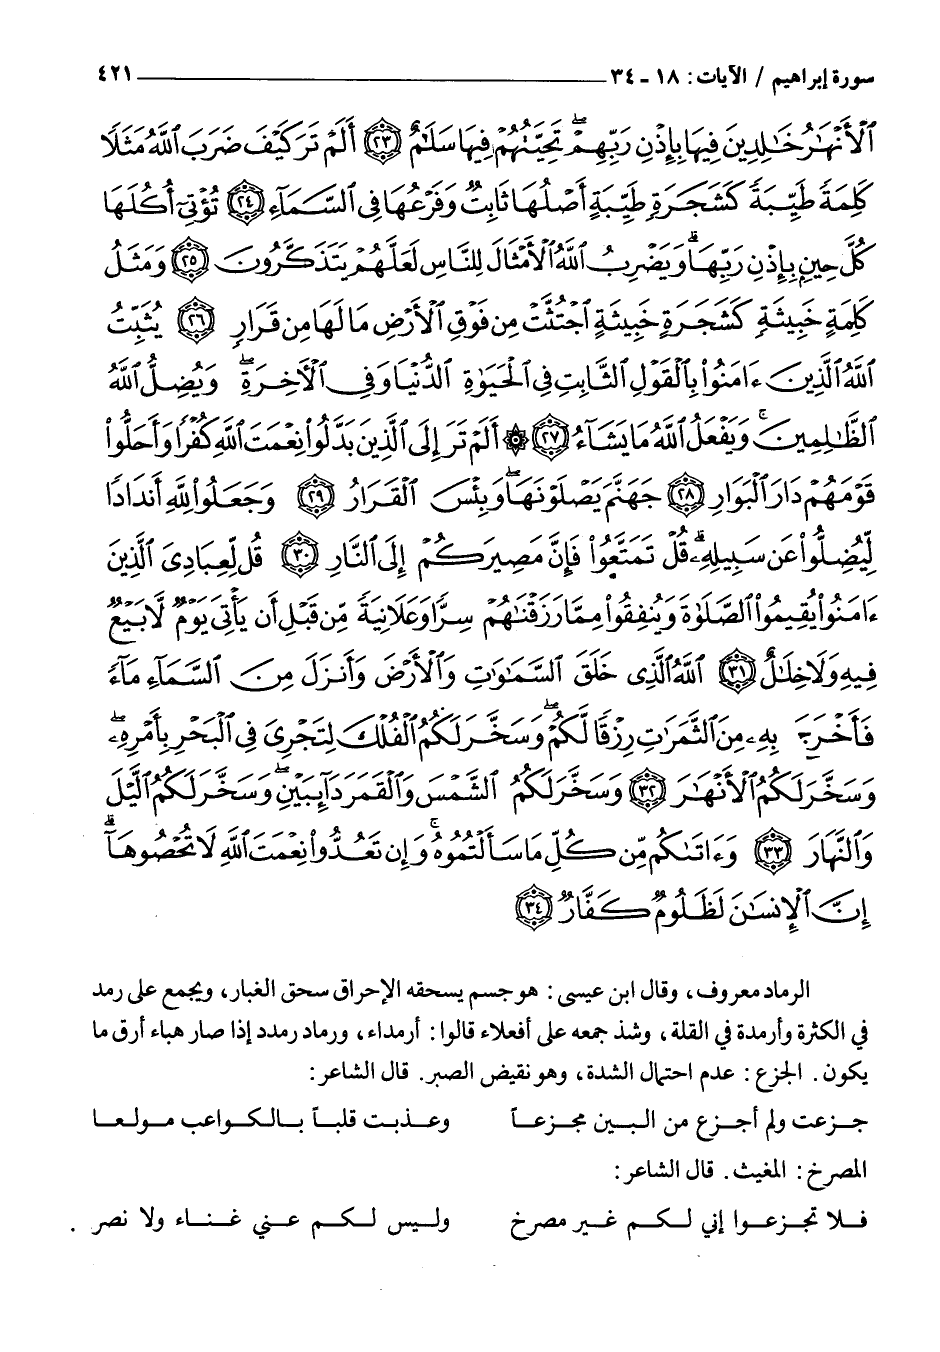 سورة إبراهيم / الآيات: ١٨ - ٣٤ ٤٢١
ٱلْأَنْهَٰرُ خَٰلِدِينَ فِيهَا بِإِذْنِ رَبِّهِمْ ۖ تَحِيَّتُهُمْ فِيهَا سَلَٰمٌ ﴿٢٣﴾ أَلَمْ تَرَ كَيْفَ ضَرَبَ ٱللَّهُ مَثَلًا
كَلِمَةً طَيِّبَةً كَشَجَرَةٍ طَيِّبَةٍ أَصْلُهَا ثَابِتٌ وَفَرْعُهَا فِى ٱلسَّمَآءِ ﴿٢٤﴾ تُؤْتِىٓ أُكُلَهَا
كُلَّ حِينٍۭ بِإِذْنِ رَبِّهَا ۗ وَيَضْرِبُ ٱللَّهُ ٱلْأَمْثَالَ لِلنَّاسِ لَعَلَّهُمْ يَتَذَكَّرُونَ ﴿٢٥﴾ وَمَثَلُ
كَلِمَةٍ خَبِيثَةٍ كَشَجَرَةٍ خَبِيثَةٍ ٱجْتُثَّتْ مِن فَوْقِ ٱلْأَرْضِ مَا لَهَا مِن قَرَارٍ ﴿٢٦﴾ يُثَبِّتُ
ٱللَّهُ ٱلَّذِينَ ءَامَنُوا۟ بِٱلْقَوْلِ ٱلثَّابِتِ فِى ٱلْحَيَوٰةِ ٱلدُّنْيَا وَفِى ٱلْءَاخِرَةِ ۖ وَيُضِلُّ ٱللَّهُ
ٱلظَّٰلِمِينَ ۚ وَيَفْعَلُ ٱللَّهُ مَا يَشَآءُ ﴿٢٧﴾ ۞ أَلَمْ تَرَ إِلَى ٱلَّذِينَ بَدَّلُوا۟ نِعْمَتَ ٱللَّهِ كُفْرًا وَأَحَلُّوا۟
قَوْمَهُمْ دَارَ ٱلْبَوَارِ ﴿٢٨﴾ جَهَنَّمَ يَصْلَوْنَهَا ۖ وَبِئْسَ ٱلْقَرَارُ ﴿٢٩﴾ وَجَعَلُوا۟ لِلَّهِ أَندَادًا
لِّيُضِلُّوا۟ عَن سَبِيلِهِۦ ۗ قُلْ تَمَتَّعُوا۟ فَإِنَّ مَصِيرَكُمْ إِلَى ٱلنَّارِ ﴿٣٠﴾ قُل لِّعِبَادِىَ ٱلَّذِينَ
ءَامَنُوا۟ يُقِيمُوا۟ ٱلصَّلَوٰةَ وَيُنفِقُوا۟ مِمَّا رَزَقْنَٰهُمْ سِرًّا وَعَلَانِيَةً مِّن قَبْلِ أَن يَأْتِىَ يَوْمٌ لَّا بَيْعٌ
فِيهِ وَلَا خِلَٰلٌ ﴿٣١﴾ ٱللَّهُ ٱلَّذِى خَلَقَ ٱلسَّمَٰوَٰتِ وَٱلْأَرْضَ وَأَنزَلَ مِنَ ٱلسَّمَآءِ مَآءً
فَأَخْرَجَ بِهِۦ مِنَ ٱلثَّمَرَٰتِ رِزْقًا لَّكُمْ ۖ وَسَخَّرَ لَكُمُ ٱلْفُلْكَ لِتَجْرِىَ فِى ٱلْبَحْرِ بِأَمْرِهِۦ ۖ
وَسَخَّرَ لَكُمُ ٱلْأَنْهَٰرَ ﴿٣٢﴾ وَسَخَّرَ لَكُمُ ٱلشَّمْسَ وَٱلْقَمَرَ دَآئِبَيْنِ ۖ وَسَخَّرَ لَكُمُ ٱلَّيْلَ
وَٱلنَّهَارَ ﴿٣٣﴾ وَءَاتَىٰكُم مِّن كُلِّ مَا سَأَلْتُمُوهُ ۚ وَإِن تَعُدُّوا۟ نِعْمَتَ ٱللَّهِ لَا تُحْصُوهَآ ۗ
إِنَّ ٱلْإِنسَٰنَ لَظَلُومٌ كَفَّارٌ ﴿٣٤﴾
الرماد معروف، وقال ابن عيسى: هو جسم يسحقه الإحراق سحق الغبار، ويجمع على رمد
في الكثرة وأرمدة في القلة، وشذ جمعه على أفعلاء قالوا: أرمداء، ورماد رمدد إذا صار هباء أرق ما
يكون. الجزع: عدم احتمال الشدة، وهو نقيض الصبر. قال الشاعر:
جزعت ولم أجزع من البين مجزعاً وعذبت قلباً بالكواعب مولعا
المصرخ: المغيث. قال الشاعر:
فلا تجزعوا إني لكم غير مصرخ وليس لكم عني غناء ولا نصر .